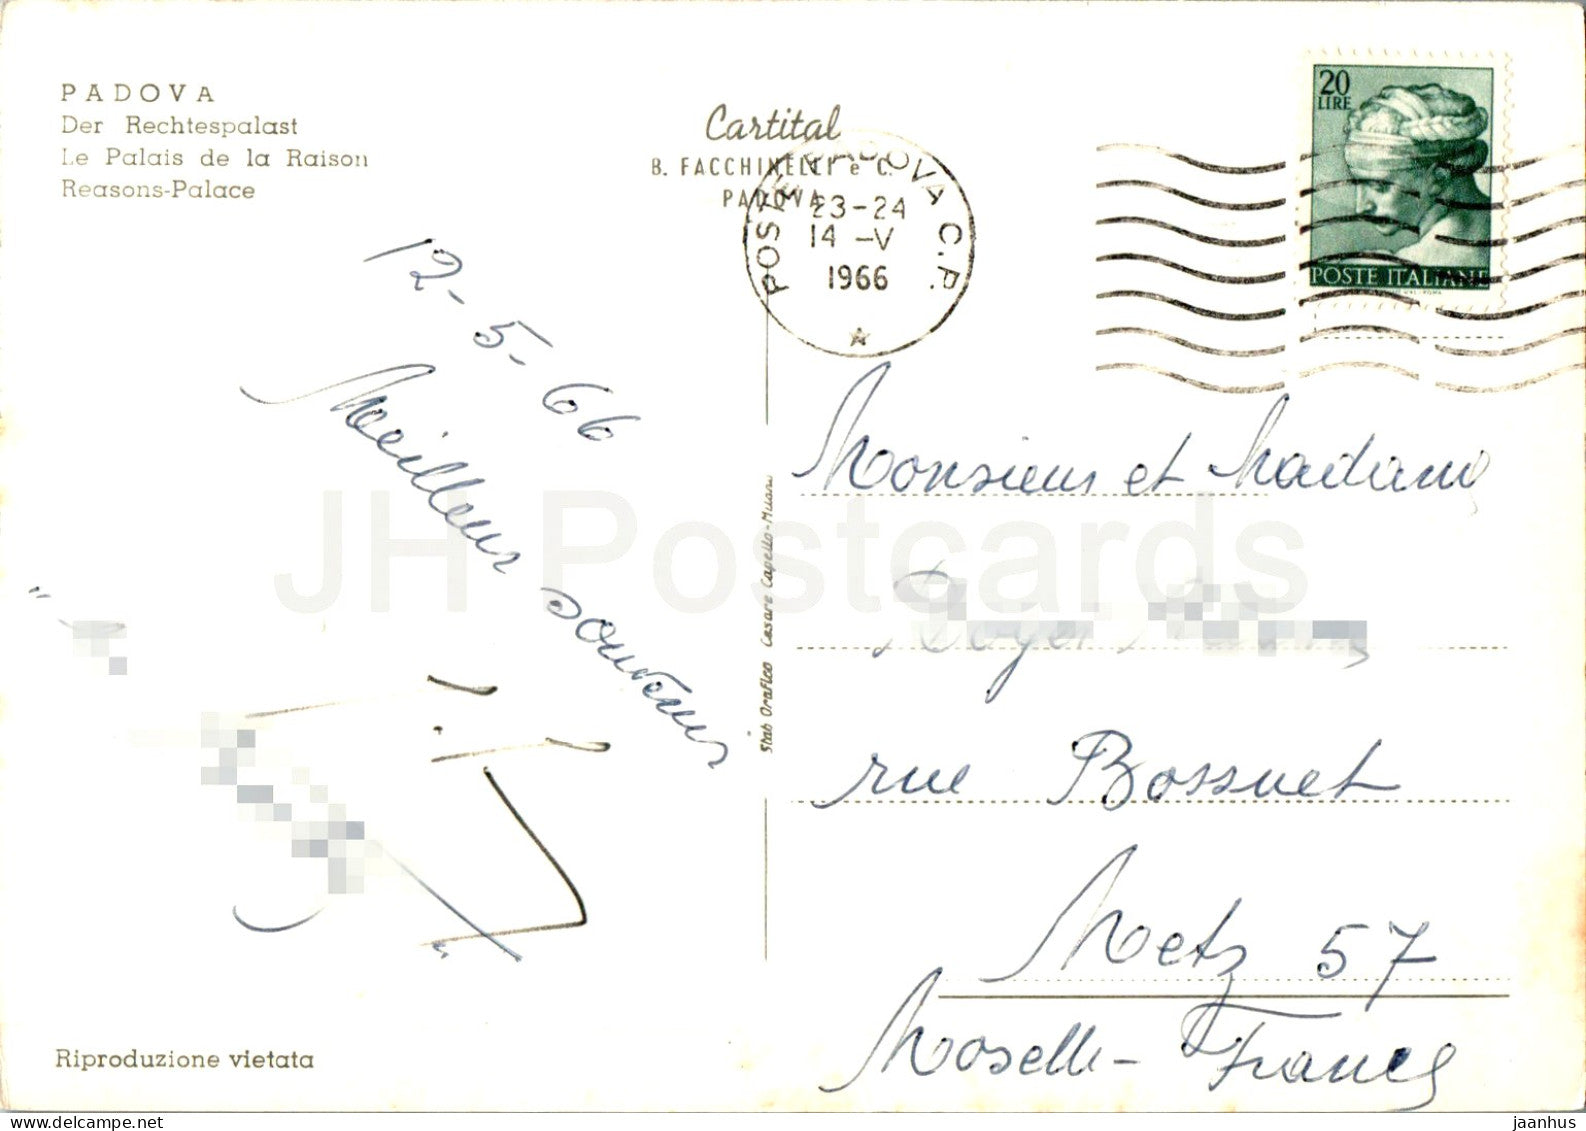 PADOVA
Der Rechtespalast
Le Palais de la Raison
Reasons-Palace
Cartital
B. FACCHINELLI e C.
PADOVA
POSTE PADOVA C.P.
23-24
14 -V
1966
20
LIRE
POSTE ITALIANE
12-5-66
Meilleurs souvenirs
Monsieur et Madame
Roger
rue Bossuet
Metz 57
Moselle - France
Stab Grafico Cesare Capello-Milano
Riproduzione vietata
JH Postcards
jaanhus